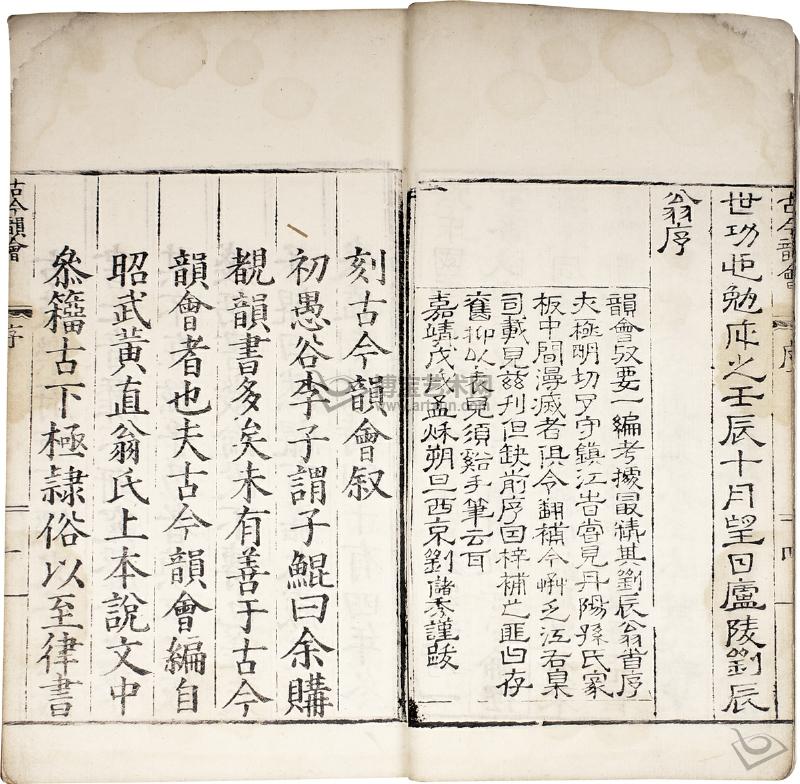 古今韻會 序 十四
世功勉成之壬辰十月望日廬陵劉辰
翁序
韻會要一編考據最精其劉辰翁首序
尤極明切守鎮江峕嘗見丹陽孫氏家
板中間漫滅者俱令翻補今之江右臬
司載見兹刋但缺前序因梓補之匪曰存
舊抑以表見須谿手筆云耳
嘉靖戊戌孟秌朔旦西京劉儲秀謹跋
刻古今韻會叙
初愚谷李子謂子鯤曰余購
覩韻書多矣未有善于古今
韻會者也夫古今韻會編自
昭武黃直翁氏上本說文中
叅籀古下極隸俗以至律書
古今韻會 序 一
博宝艺术网
www.artxun.com